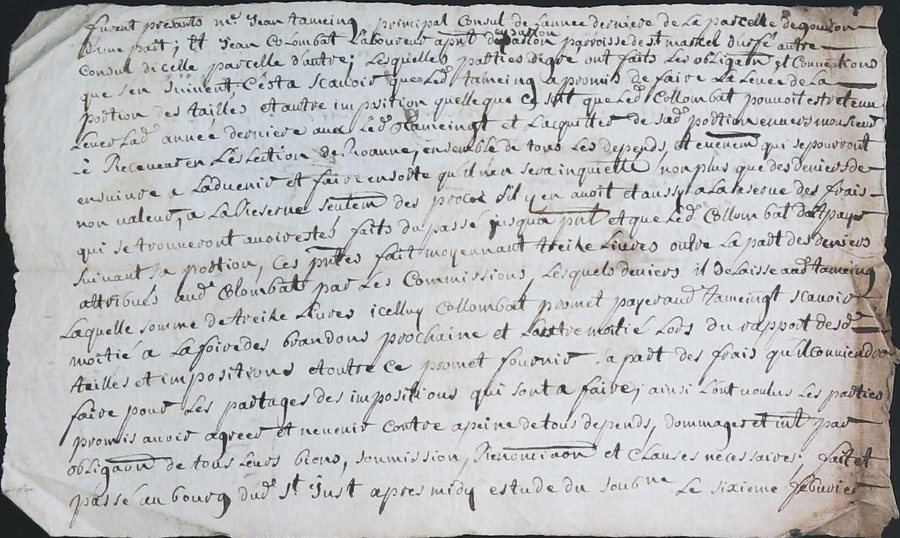 furent presants me Jean tameing principal Consul de lannee derniere de La parcelle de
dune part; Et Jean Colombat Laboureur a parroisse de st marcel durfé autre
Consul dicelle parcelle d'autre; Lesquelles parties de gre ont faits Les obligaon et Conventions
que sen suivent, C'est a scavoir que Led. tameing a promis de faire La Levee de La
portion des tailles et autre imposition quelle que ce soit que Led. Collombat pouvoit estre tenu
Lever Lad. année derniere avec Led. tameingt et Lacquitter de sad. portion envers monsieur
Le Receveur en L'eslection de Roanne, ensemble de tous Les depends et evenem. qui se pourront
ensuivre a Ladvenir et faire en sorte qu'il n'en sera inquietté, non plus que des deniers de
non valeur, a La Reserve seulem. des proces s'il y en avoit et aussy a La reserve des frais
qui se trouveront avoir estes faits du passé jusqua pnt et que Led. Collombat doit payer
suivant sa portion, Ces pntes fait moyennant treize Livres outre La part des deniers
attribués aud. Colombat par Les Commissions, Lesquels deniers il delaisse aud. tameing
Laquelle somme de treize Livres icelluy Collombat promet payer aud. tameingt scavoir
moitié a La foire des brandons prochaine et Lautre moitié Lors du rapport desd.
tailles et impositions et outre ce promet fournir sa part des frais qu'il conviendra
faire pour Les partages des impositions qui sont a faire; ainsi L'ont voulus Les parties
promis avoir agreer et ne venir contre a peine de tous depends, dommages et int. par
obligaon de tous Leurs biens, soumission, Renonciaon et Clauses necessaires. fait et
passé au bourg dud. St. Just apres midy estude du soubne Le sixieme febvrier